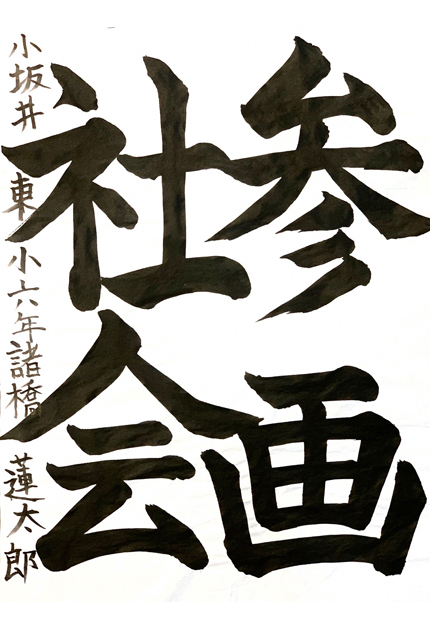 参画
社会
小坂井東小六年諸橋蓮太郎